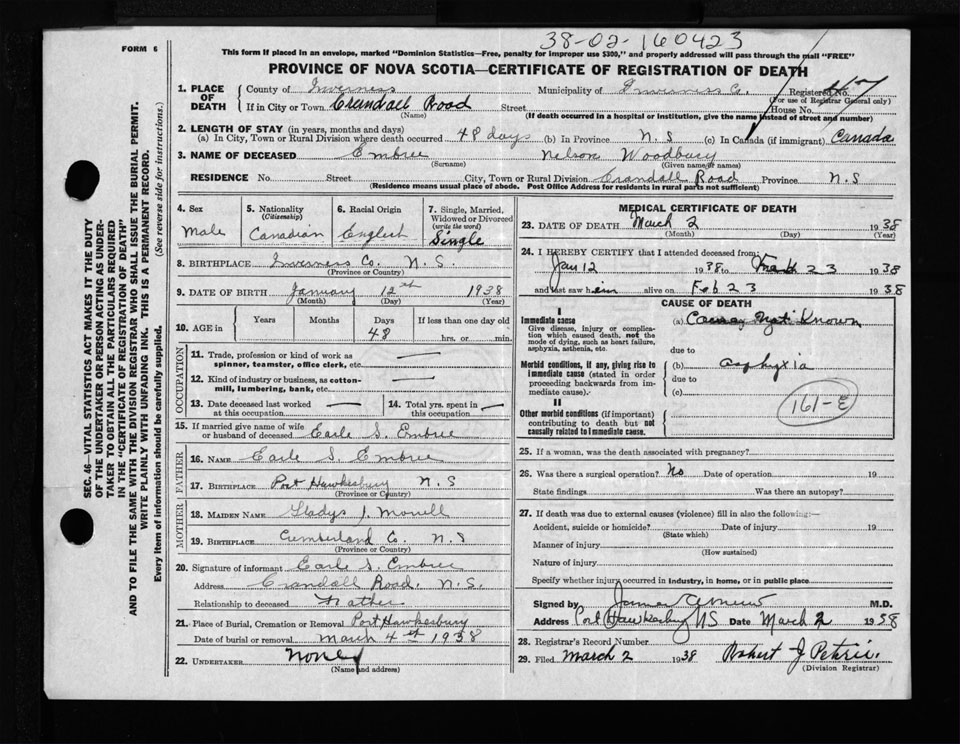 38-02-160423
FORM 6
This form if placed in an envelope, marked "Dominion Statistics—Free, penalty for improper use $300," and properly addressed will pass through the mail "FREE"
PROVINCE OF NOVA SCOTIA—CERTIFICATE OF REGISTRATION OF DEATH
1. PLACE OF DEATH County of Inverness Municipality of Inverness Co. Registered No.
(For use of Registrar General only)
If in City or Town Crandall Road Street House No.
(Name) (If death occurred in a hospital or institution, give the name instead of street and number)
2. LENGTH OF STAY (in years, months and days)
(a) In City, Town or Rural Division where death occurred 48 days (b) In Province N.S (c) In Canada (if immigrant) Canada
3. NAME OF DECEASED Embree Nelson Woodbury
(Surname) (Given name or names)
RESIDENCE No. Street City, Town or Rural Division Crandall Road Province N.S
(Residence means usual place of abode. Post Office Address for residents in rural parts not sufficient)
4. Sex
Male
5. Nationality
(Citizenship)
Canadian
6. Racial Origin
English
7. Single, Married, Widowed or Divorced
(write the word)
Single
8. BIRTHPLACE Inverness Co. N.S.
(Province or Country)
9. DATE OF BIRTH January 12th 1938
(Month) (Day) (Year)
10. AGE in Years Months Days If less than one day old
48 hrs. or min.
OCCUPATION
11. Trade, profession or kind of work as spinner, teamster, office clerk, etc.
12. Kind of industry or business, as cotton-mill, lumbering, bank, etc.
13. Date deceased last worked at this occupation
14. Total yrs. spent in this occupation
15. If married give name of wife or husband of deceased Earle S. Embree
FATHER
16. NAME Earle S. Embree
17. BIRTHPLACE Port Hawkesbury N.S
(Province or Country)
MOTHER
18. MAIDEN NAME Gladys J.
19. BIRTHPLACE Cumberland Co. N.S
(Province or Country)
20. Signature of informant Earle S. Embree
Address Crandall Road N.S.
Relationship to deceased Father
21. Place of Burial, Cremation or Removal Port Hawkesbury
Date of burial or removal March 4th 1938
22. UNDERTAKER None
(Name and address)
MEDICAL CERTIFICATE OF DEATH
23. DATE OF DEATH March 2 1938
(Month) (Day) (Year)
24. I HEREBY CERTIFY that I attended deceased from:
Jan 12 1938 to 23 1938
and last saw him alive on Feb 23 1938
CAUSE OF DEATH
I
Immediate cause
Give disease, injury or complication which caused death, not the mode of dying, such as heart failure, asphyxia, asthenia, etc.
(a) Cause Not Known
due to
Morbid conditions, if any, giving rise to immediate cause (stated in order proceeding backwards from immediate cause).
(b) asphyxia
due to
(c)
161-E
II
Other morbid conditions (if important) contributing to death but not causally related to immediate cause.
25. If a woman, was the death associated with pregnancy?
26. Was there a surgical operation? No Date of operation 19
State findings Was there an autopsy?
27. If death was due to external causes (violence) fill in also the following:—
Accident, suicide or homicide? Date of injury 19
(State which)
Manner of injury
(How sustained)
Nature of injury
Specify whether injury occurred in industry, in home, or in public place
Signed by M.D.
Address Port Hawkesbury NS Date March 2 1938
28. Registrar's Record Number
29. Filed March 2 1938 Robert J Petrie.
(Division Registrar)
SEC. 46—VITAL STATISTICS ACT MAKES IT THE DUTY
OF THE UNDERTAKER OR PERSON ACTING AS UNDER-
TAKER TO OBTAIN ALL THE PARTICULARS REQUIRED
IN THE "CERTIFICATE OF REGISTRATION OF DEATH"
AND TO FILE THE SAME WITH THE DIVISION REGISTRAR WHO SHALL ISSUE THE BURIAL PERMIT.
WRITE PLAINLY WITH UNFADING INK. THIS IS A PERMANENT RECORD.
Every item of information should be carefully supplied. (See reverse side for instructions.)